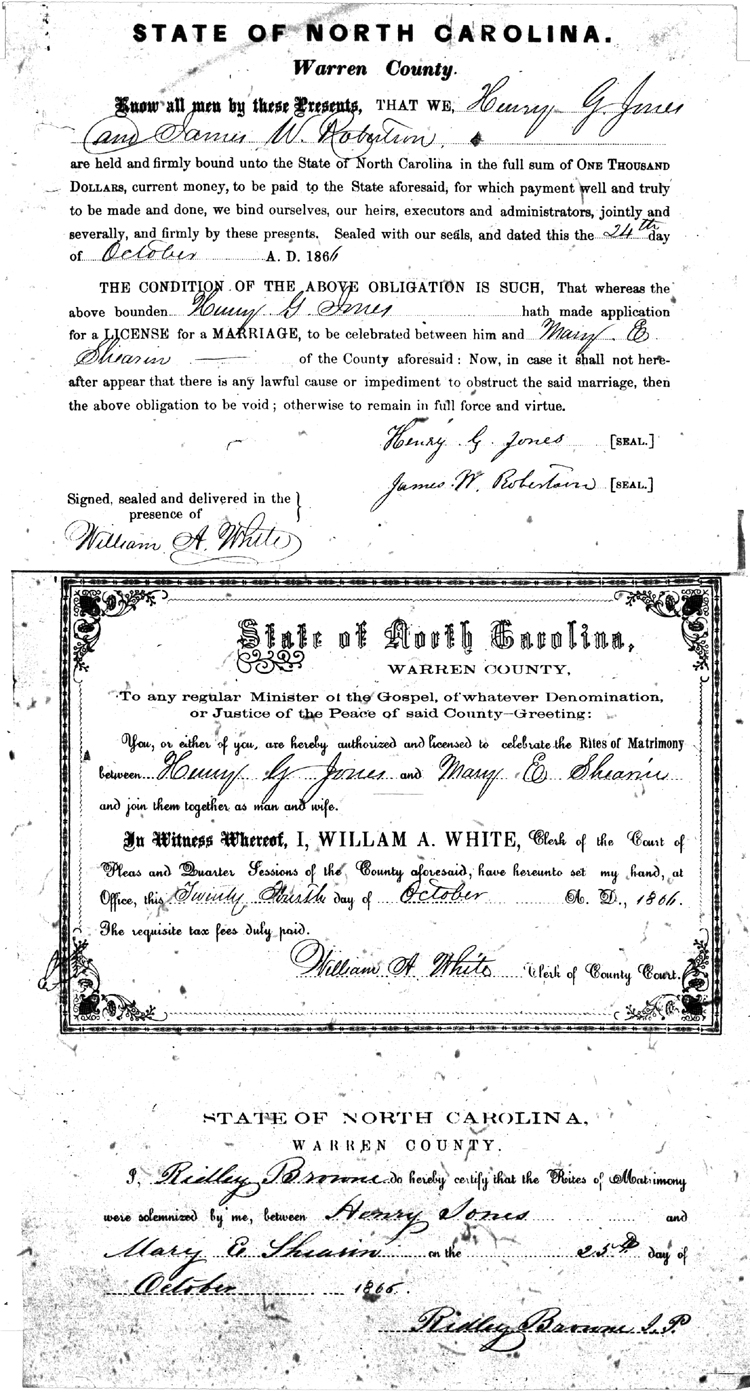 STATE OF NORTH CAROLINA.
Warren County.
Know all men by these Presents, THAT WE, Henry G. Jones
and James W. Robertson,
are held and firmly bound unto the State of North Carolina in the full sum of ONE THOUSAND
DOLLARS, current money, to be paid to the State aforesaid, for which payment well and truly
to be made and done, we bind ourselves, our heirs, executors and administrators, jointly and
severally, and firmly by these presents. Sealed with our seals, and dated this the 24th day
of October A. D. 1866
THE CONDITION OF THE ABOVE OBLIGATION IS SUCH, That whereas the
above bounden Henry G Jones hath made application
for a LICENSE for a MARRIAGE, to be celebrated between him and Mary E
Shearin of the County aforesaid: Now, in case it shall not here-
after appear that there is any lawful cause or impediment to obstruct the said marriage, then
the above obligation to be void; otherwise to remain in full force and virtue.
Henry G. Jones [SEAL.]
James W. Robertson [SEAL.]
Signed, sealed and delivered in the
presence of
William A. White
State of North Carolina,
WARREN COUNTY,
To any regular Minister of the Gospel, of whatever Denomination,
or Justice of the Peace of said County—Greeting:
You, or either of you, are hereby authorized and licensed to celebrate the Rites of Matrimony
between Henry G Jones and Mary E Shearin
and join them together as man and wife.
In Witness Whereof, I, WILLAM A. WHITE, Clerk of the Court of
Pleas and Quarter Sessions of the County aforesaid, have hereunto set my hand, at
Office, this Twenty Fourth day of October A. D., 1866.
The requisite tax fees duly paid.
William A White Clerk of County Court.
STATE OF NORTH CAROLINA,
WARREN COUNTY.
I, Ridley Browne do hereby certify that the Rites of Matrimony
were solemnized by me, between Henry Jones and
Mary E Shearin on the 25th day of
October 1866.
Ridley Browne J.P.